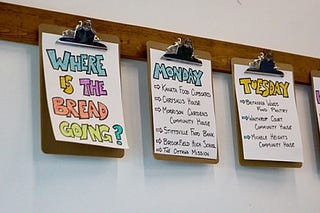 WHERE
IS THE
BREAD
GOING?
MONDAY
→ KANATA FOOD CUPBOARD
→ CHRYSALIS HOUSE
→ MORRISON GARDENS
COMMUNITY HOUSE
→ STITTSVILLE FOOD BANK
→ BROOKFIELD HIGH SCHOOL
→ THE OTTAWA MISSION
TUESDAY
→ BRITANNIA WOODS
FOOD PANTRY
→ WINTHROP COURT
COMMUNITY HOUSE
→ MICHELE HEIGHTS
COMMUNITY HOUSE